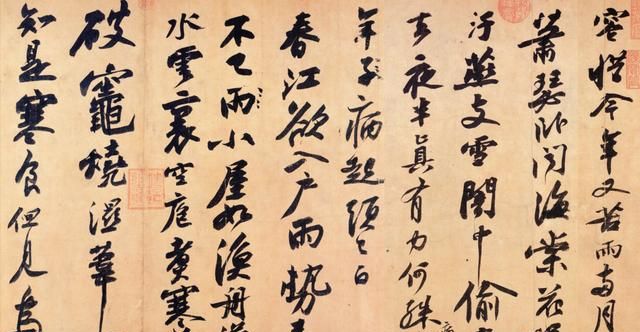 容惜今年又苦雨兩月
蕭瑟臥聞海棠花
汙燕支雪闇中偷
去夜半真有力何殊
年子病起須已白
春江欲入戶雨勢
不已雨小屋如漁舟
水雲裏空庖煮寒
破竈燒濕葦
知是寒食但見烏